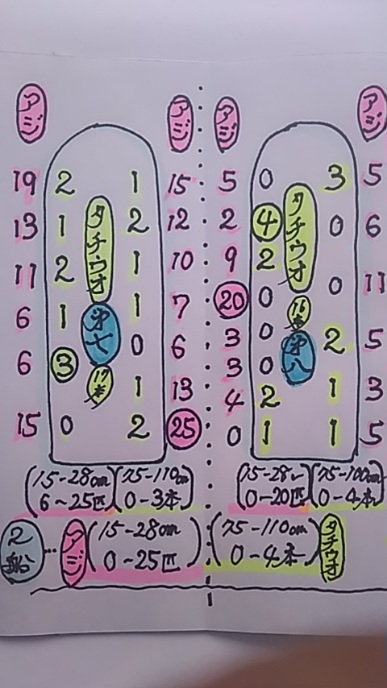 アジ アジ アジ アジ
19 2 1 15 5 0 3 5
13 1 タチウオ 2 12 2 4 タチウオ 0 6
11 2 1 10 9 2 0 11
6 1 第七 1 7 20 0 16本
6 3 17本 0 6 3 0 第八 2 5
1 13 3 0
4 2 1 3
15 0 2 25 0 1 1 5
(15-28cm 6~25匹) (75-110cm 0-3本) (15-28㎝ 0-20匹) (75-100cm 0-4本)
2船… アジ (15-28cm 0-25匹) (75-110cm 0-4本) タチウオ